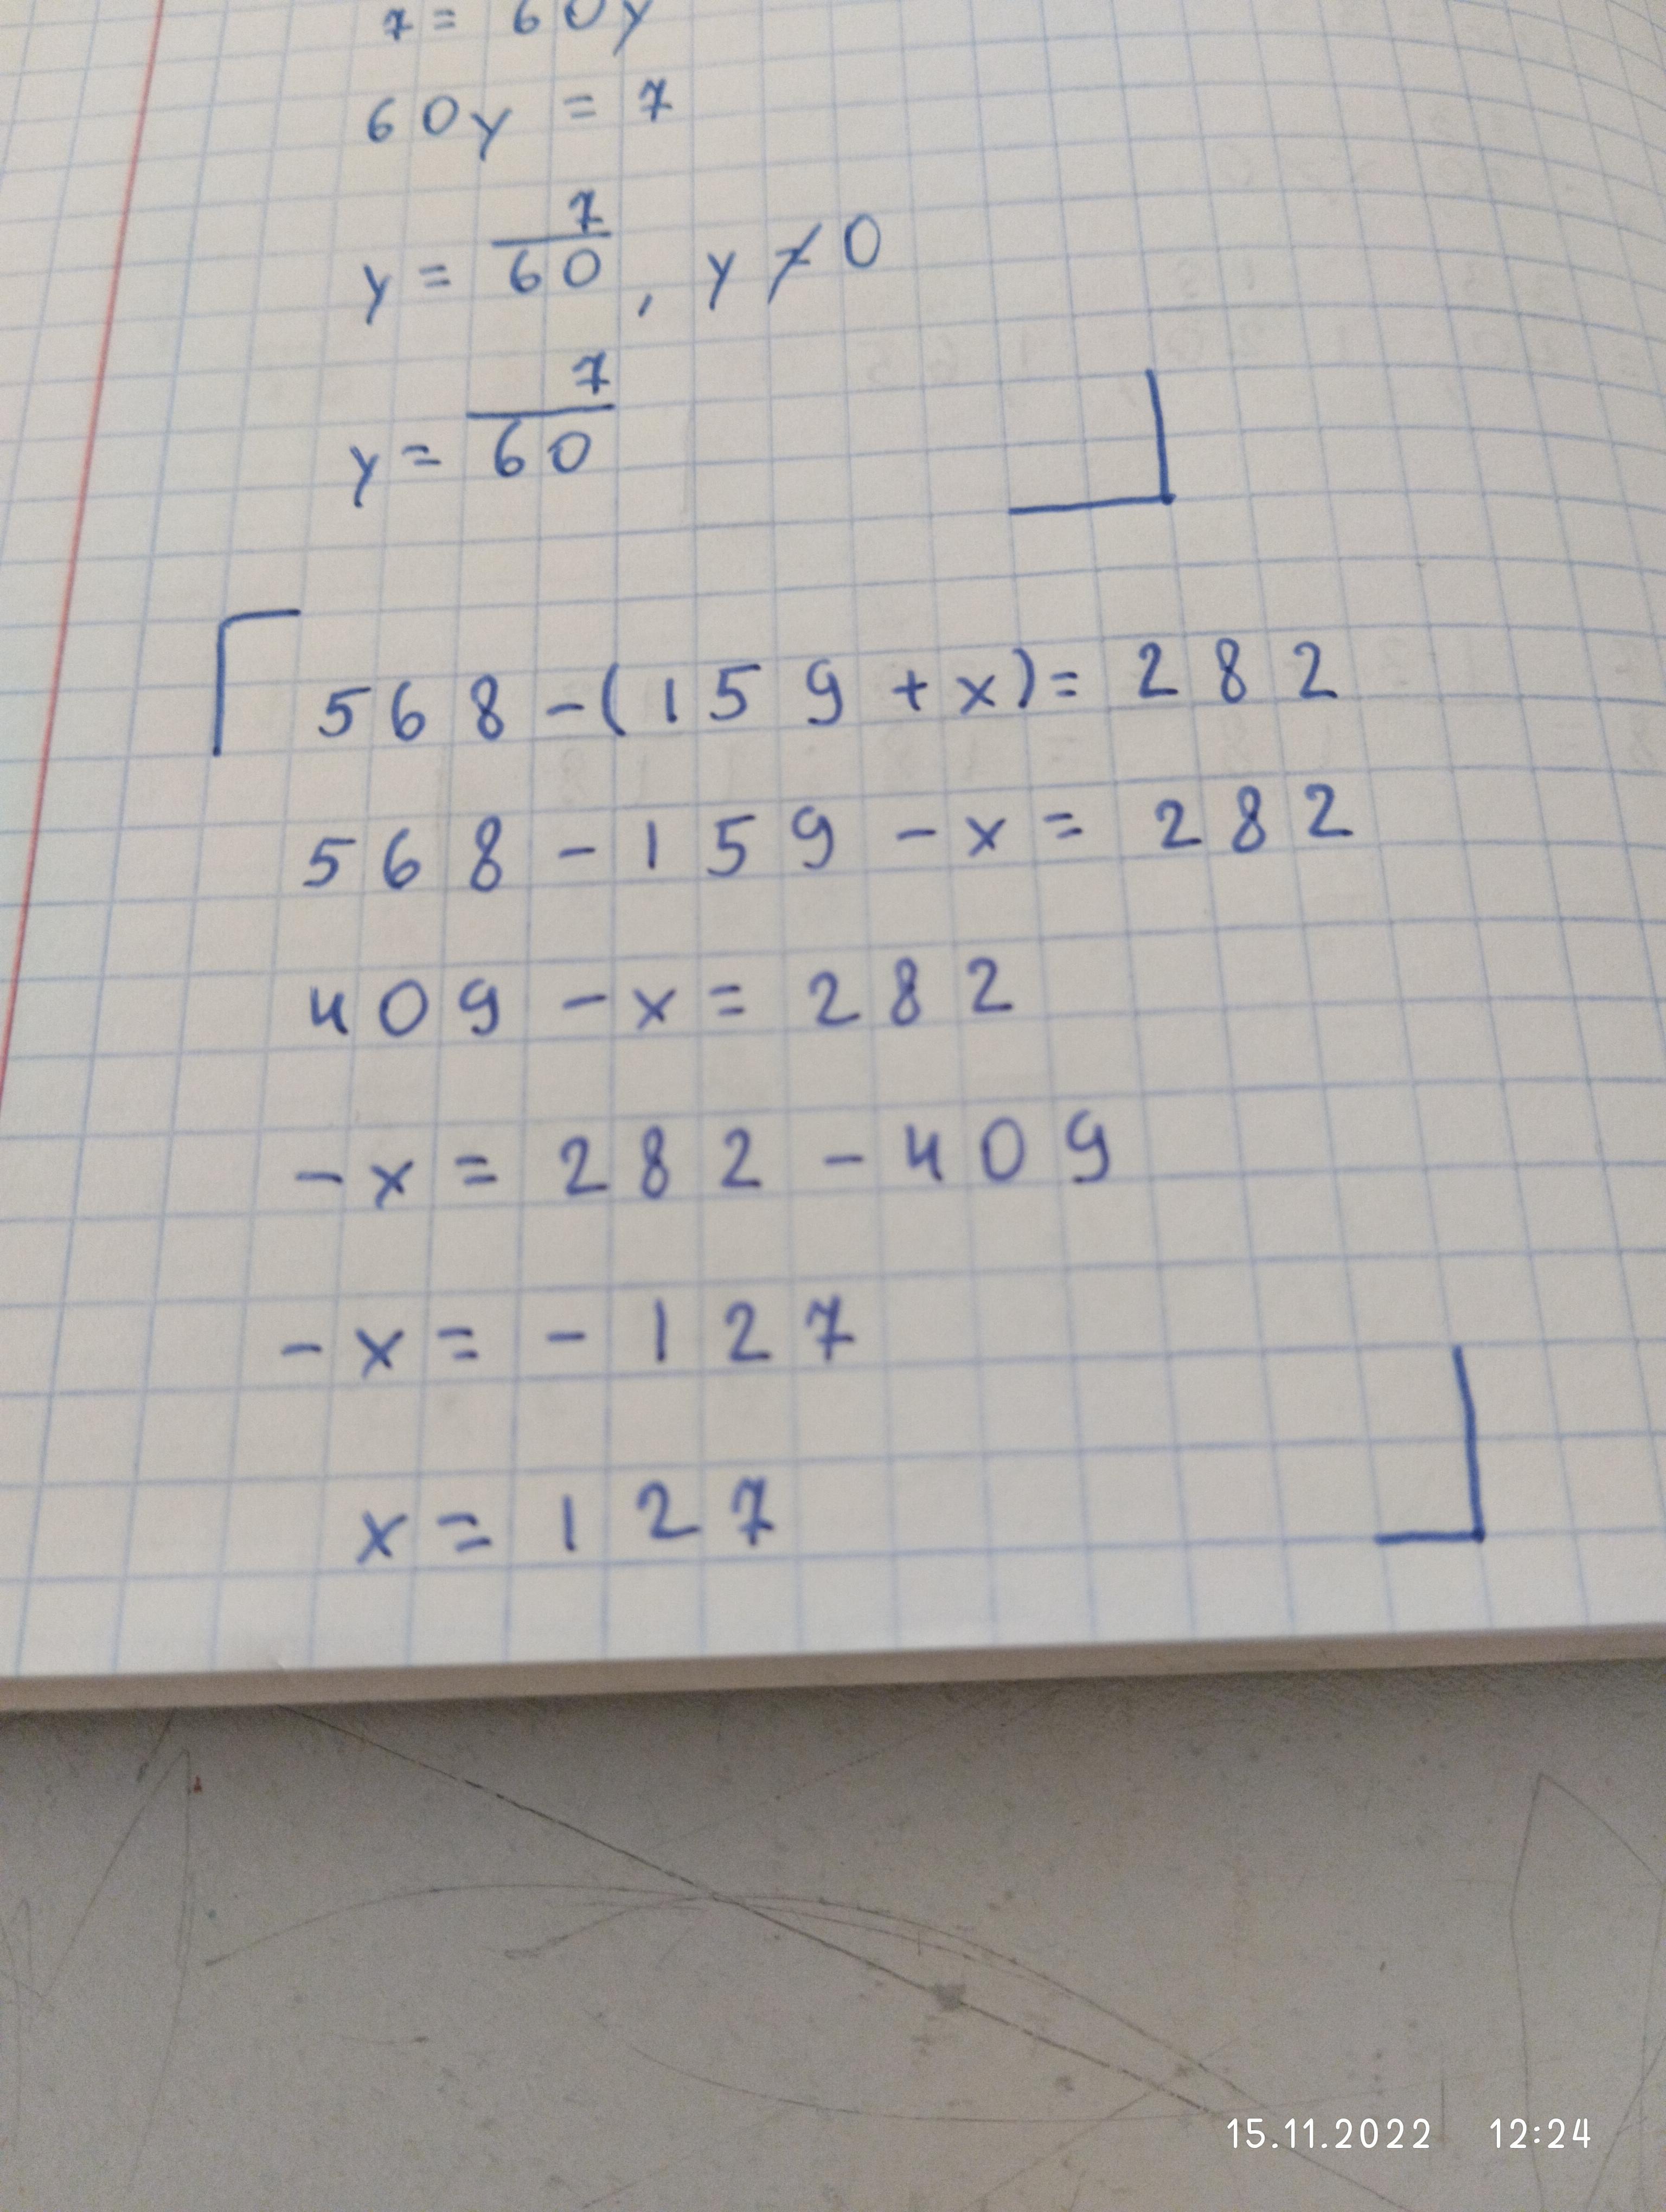 7 = 60y
60y = 7
y = 7/60, y ≠ 0
y = 7/60
568 - (159 + x) = 282
568 - 159 - x = 282
409 - x = 282
-x = 282 - 409
-x = -127
x = 127
15.11.2022 12:24